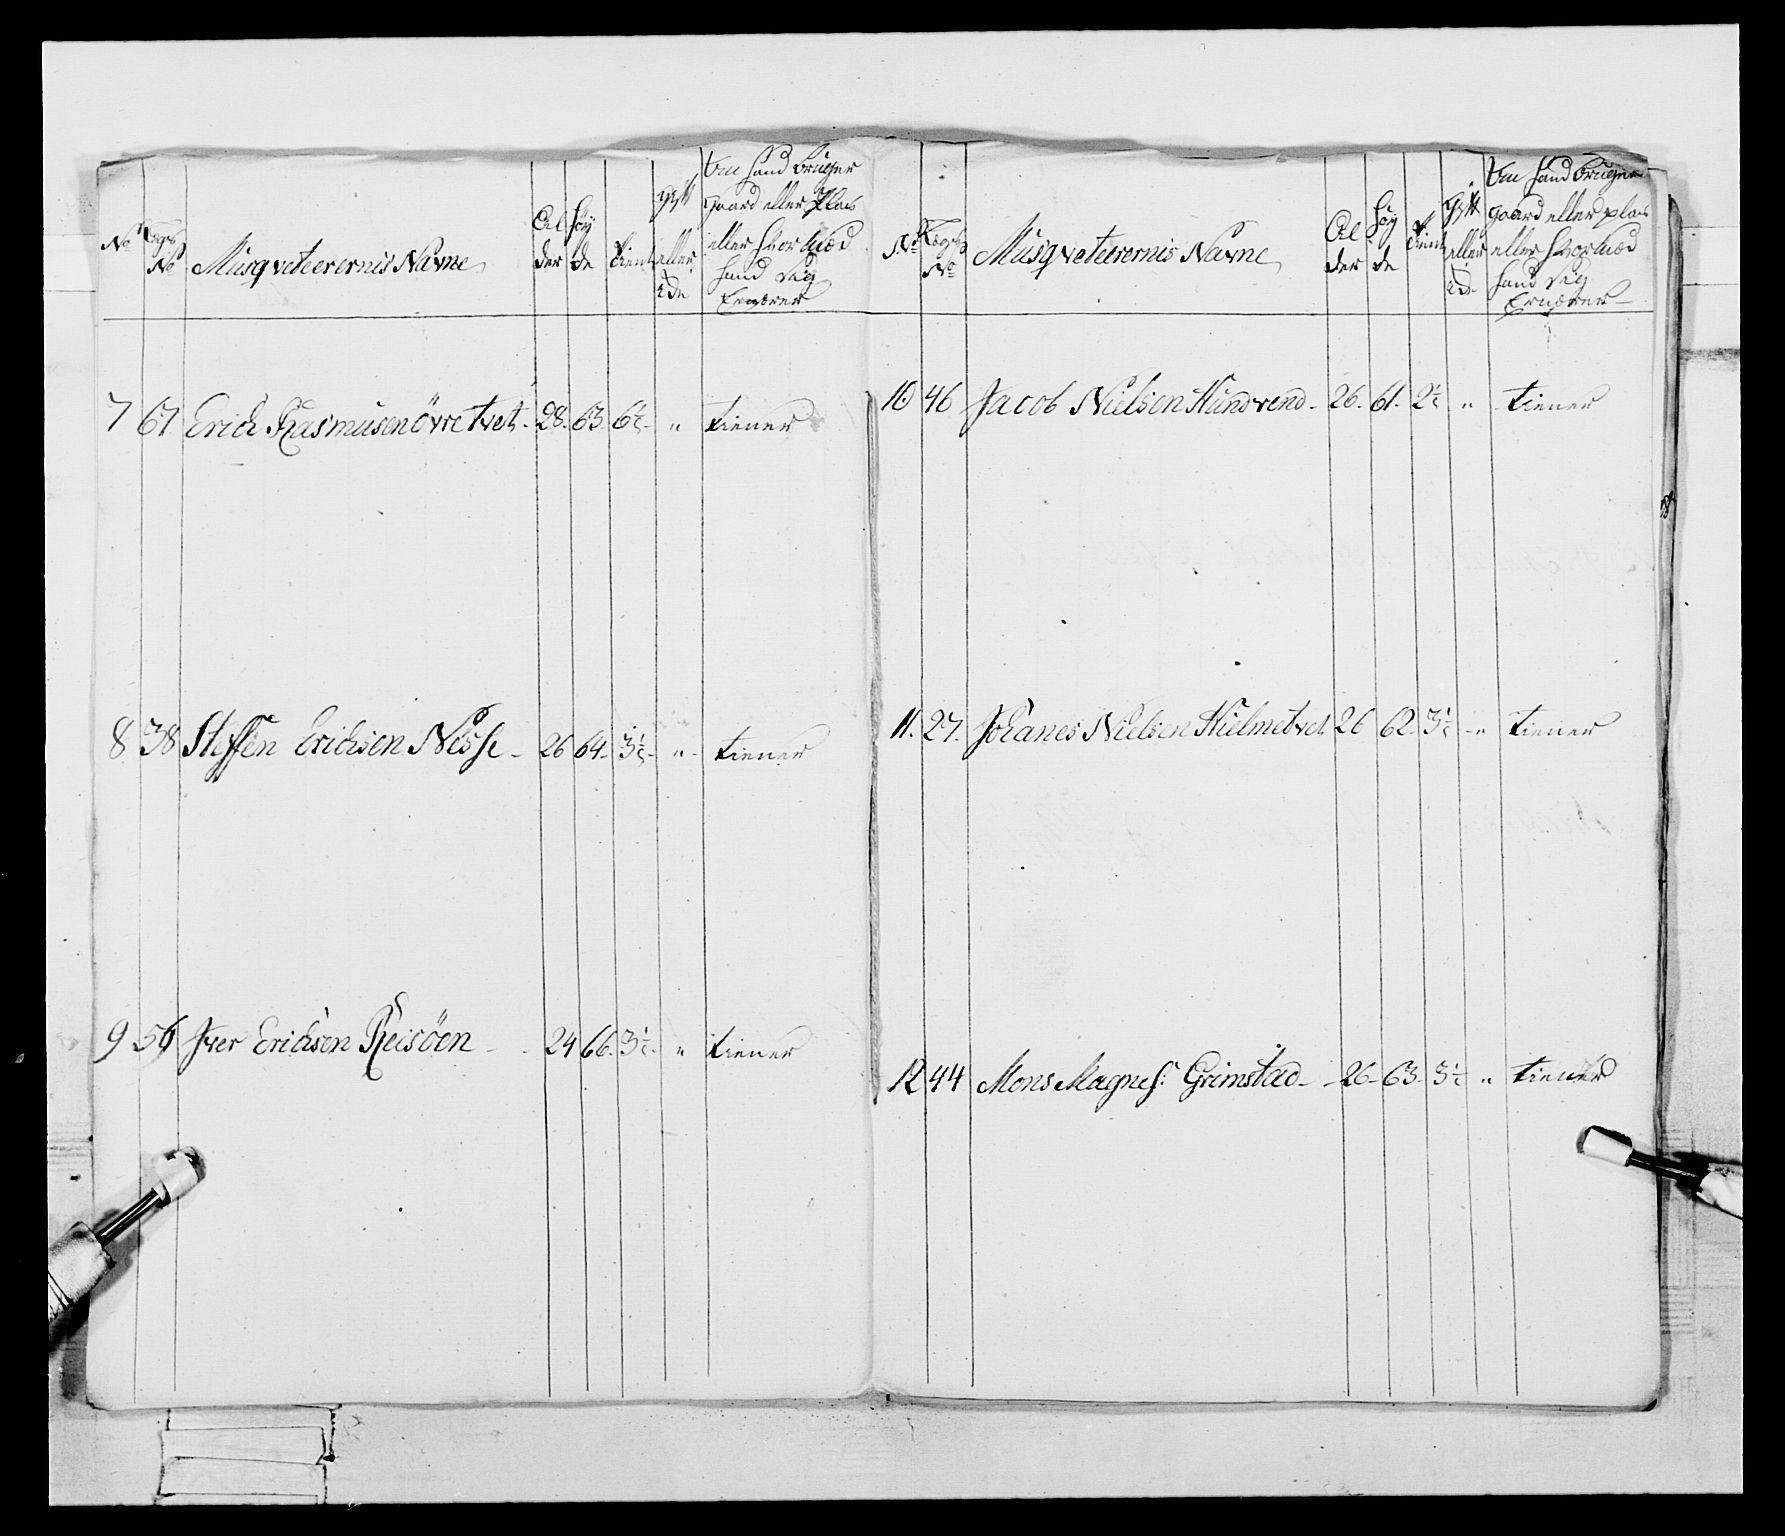 No Lægs No Musqveteerernis Navne Alder Høyde tient gift eller ei Om hand bruger gaard eller Plads eller hvormed hand sig Ernærer
7 67 Erich Rasmusen övretvet 28 63 6½ " tiener
8 38 Steffen Erichsen Nesse 26 64 3½ " tiener
9 56 Iver Erichsen Reisöen 24 66 3½ " tiener
No Lægs No Musqveteerernis Navne Alder Høyde tient gift eller Om hand bruger gaard eller plads eller hvormed hand sig Ernærer
10 46 Jacob Nielsen Hundvend 26 61 2½ " tiener
11 27 Johanes Nielsen Hielmetvet 26 62 3½ " tiener
12 44 Mons Magnes: Grimstad 26 63 3½ " tiener